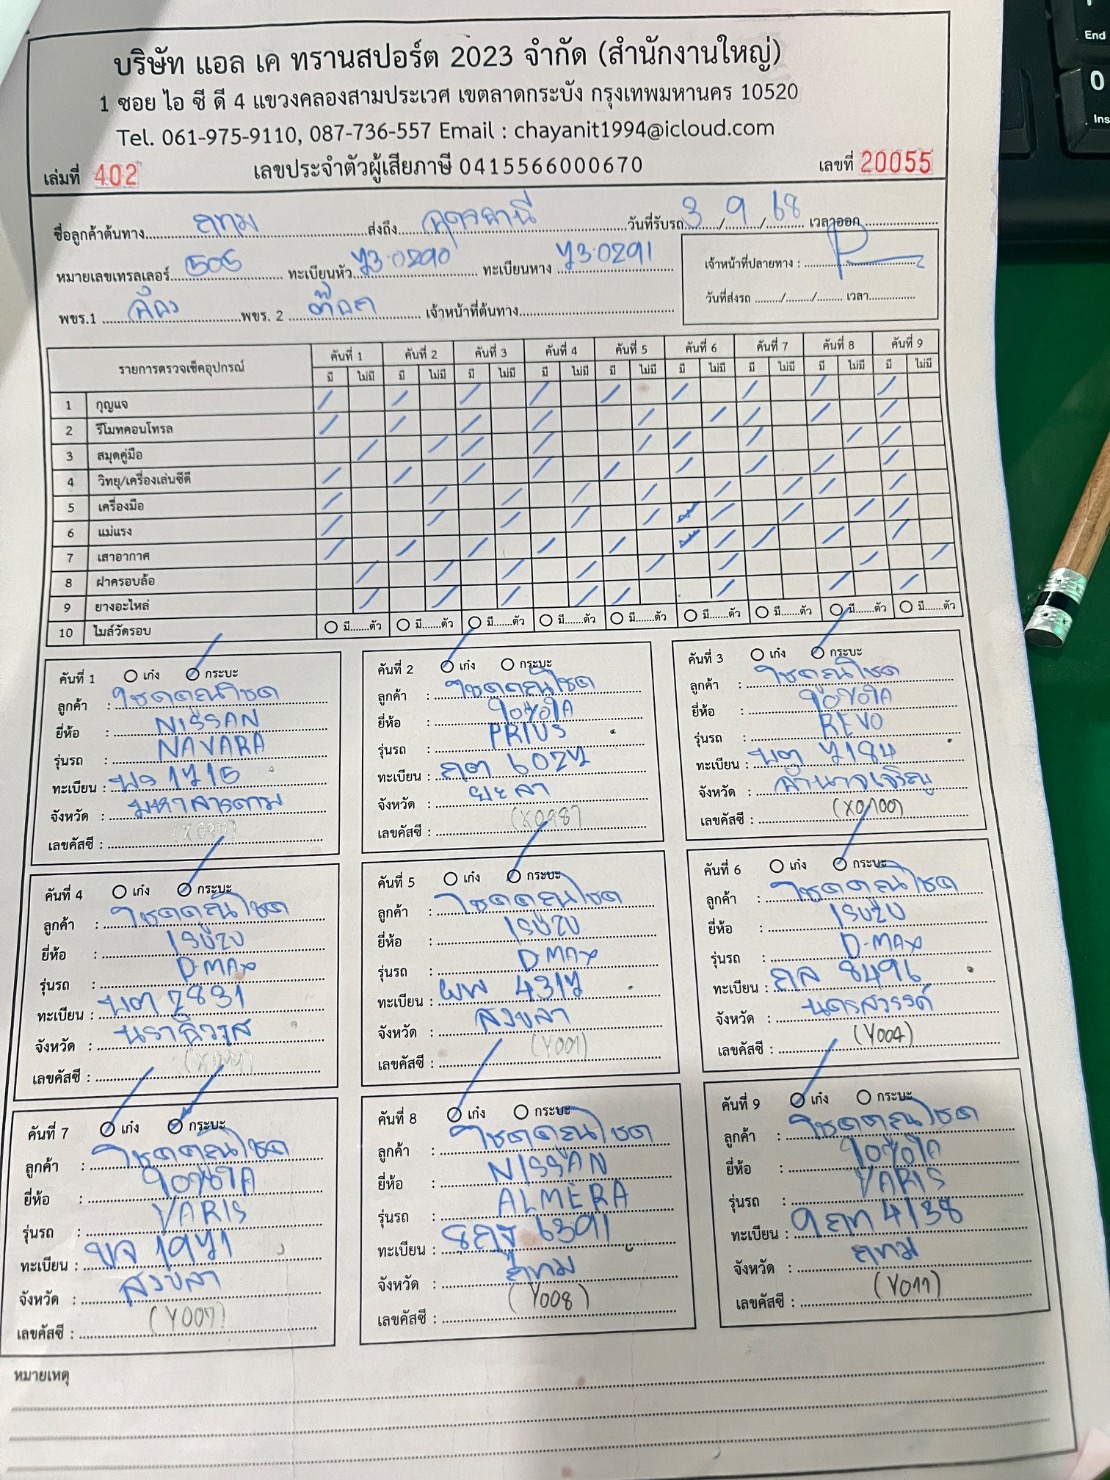 บริษัท แอล เค ทรานสปอร์ต 2023 จำกัด (สำนักงานใหญ่)
1 ซอย ไอ ซี ดี 4 แขวงคลองสามประเวศ เขตลาดกระบัง กรุงเทพมหานคร 10520
Tel. 061-975-9110, 087-736-557 Email : chayanit1994@icloud.com
เล่มที่ 402 เลขประจำตัวผู้เสียภาษี 0415566000670 เลขที่ 20055
ชื่อลูกค้าต้นทาง กทม ส่งถึง อุดรธานี วันที่รับรถ 3/9/68 เวลาออก
หมายเลขเทรลเลอร์ 505 ทะเบียนหัว 73-0290 ทะเบียนหาง 73-0291
เจ้าหน้าที่ปลายทาง :
วันที่ส่งรถ ......../......../........ เวลา
พขร.1 พขร. 2 เจ้าหน้าที่ต้นทาง
รายการตรวจเช็คอุปกรณ์ คันที่ 1 คันที่ 2 คันที่ 3 คันที่ 4 คันที่ 5 คันที่ 6 คันที่ 7 คันที่ 8 คันที่ 9
มี ไม่มี มี ไม่มี มี ไม่มี มี ไม่มี มี ไม่มี มี ไม่มี มี ไม่มี มี ไม่มี มี ไม่มี
1 กุญแจ
2 รีโมทคอนโทรล
3 สมุดคู่มือ
4 วิทยุ/เครื่องเล่นซีดี
5 เครื่องมือ
6 แม่แรง
7 เสาอากาศ
8 ฝาครอบล้อ
9 ยางอะไหล่
10 ไมล์วัดรอบ มี.......ตัว มี.......ตัว มี.......ตัว มี.......ตัว มี.......ตัว มี.......ตัว มี.......ตัว มี.......ตัว มี.......ตัว
คันที่ 1 เก๋ง กระบะ
ลูกค้า : โชคคูณโชค
ยี่ห้อ : NISSAN
รุ่นรถ : NAVARA
ทะเบียน : 1715
จังหวัด : มหาสารคาม
เลขคัสซี :
คันที่ 2 เก๋ง กระบะ
ลูกค้า : โชคคูณโชค
ยี่ห้อ : TOYOTA
รุ่นรถ : PRIUS
ทะเบียน : กต 6027
จังหวัด : ยะลา
เลขคัสซี : (X098)
คันที่ 3 เก๋ง กระบะ
ลูกค้า : โชคคูณโชค
ยี่ห้อ : TOYOTA
รุ่นรถ : REVO
ทะเบียน : บต 7184
จังหวัด : อำนาจเจริญ
เลขคัสซี : (X0100)
คันที่ 4 เก๋ง กระบะ
ลูกค้า : โชคคูณโชค
ยี่ห้อ : ISUZU
รุ่นรถ : D-MAX
ทะเบียน : บต 2831
จังหวัด : นราธิวาส
เลขคัสซี :
คันที่ 5 เก๋ง กระบะ
ลูกค้า : โชคคูณโชค
ยี่ห้อ : ISUZU
รุ่นรถ : DMAX
ทะเบียน : ผพ 4317
จังหวัด : สงขลา
เลขคัสซี : (Y001)
คันที่ 6 เก๋ง กระบะ
ลูกค้า : โชคคูณโชค
ยี่ห้อ : ISUZU
รุ่นรถ : D-MAX
ทะเบียน : กล 8496
จังหวัด : นครสวรรค์
เลขคัสซี : (Y004)
คันที่ 7 เก๋ง กระบะ
ลูกค้า : โชคคูณโชค
ยี่ห้อ : TOYOTA
รุ่นรถ : YARIS
ทะเบียน : ขจ 1971
จังหวัด : สงขลา
เลขคัสซี : (Y007)
คันที่ 8 เก๋ง กระบะ
ลูกค้า : โชคคูณโชค
ยี่ห้อ : NISSAN
รุ่นรถ : ALMERA
ทะเบียน : 8กฐ 6391
จังหวัด : กทม
เลขคัสซี : (Y008)
คันที่ 9 เก๋ง กระบะ
ลูกค้า : โชคคูณโชค
ยี่ห้อ : TOYOTA
รุ่นรถ : YARIS
ทะเบียน : 9กท 4138
จังหวัด : กทม
เลขคัสซี : (Y011)
หมายเหตุ
End
0
Ins